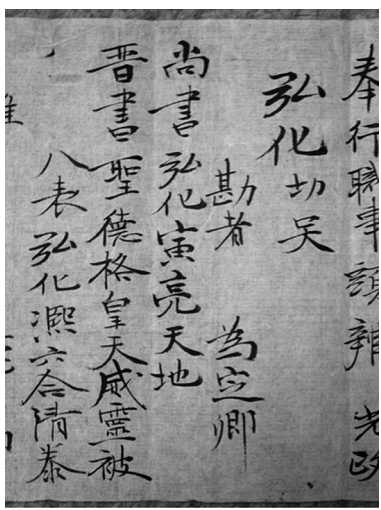 奉行職事頭辨 光政
弘化 切吴
勘者 為定卿
尚書弘化寅亮天地
晋書聖德格皇天威靈被
八表弘化凞六合清泰